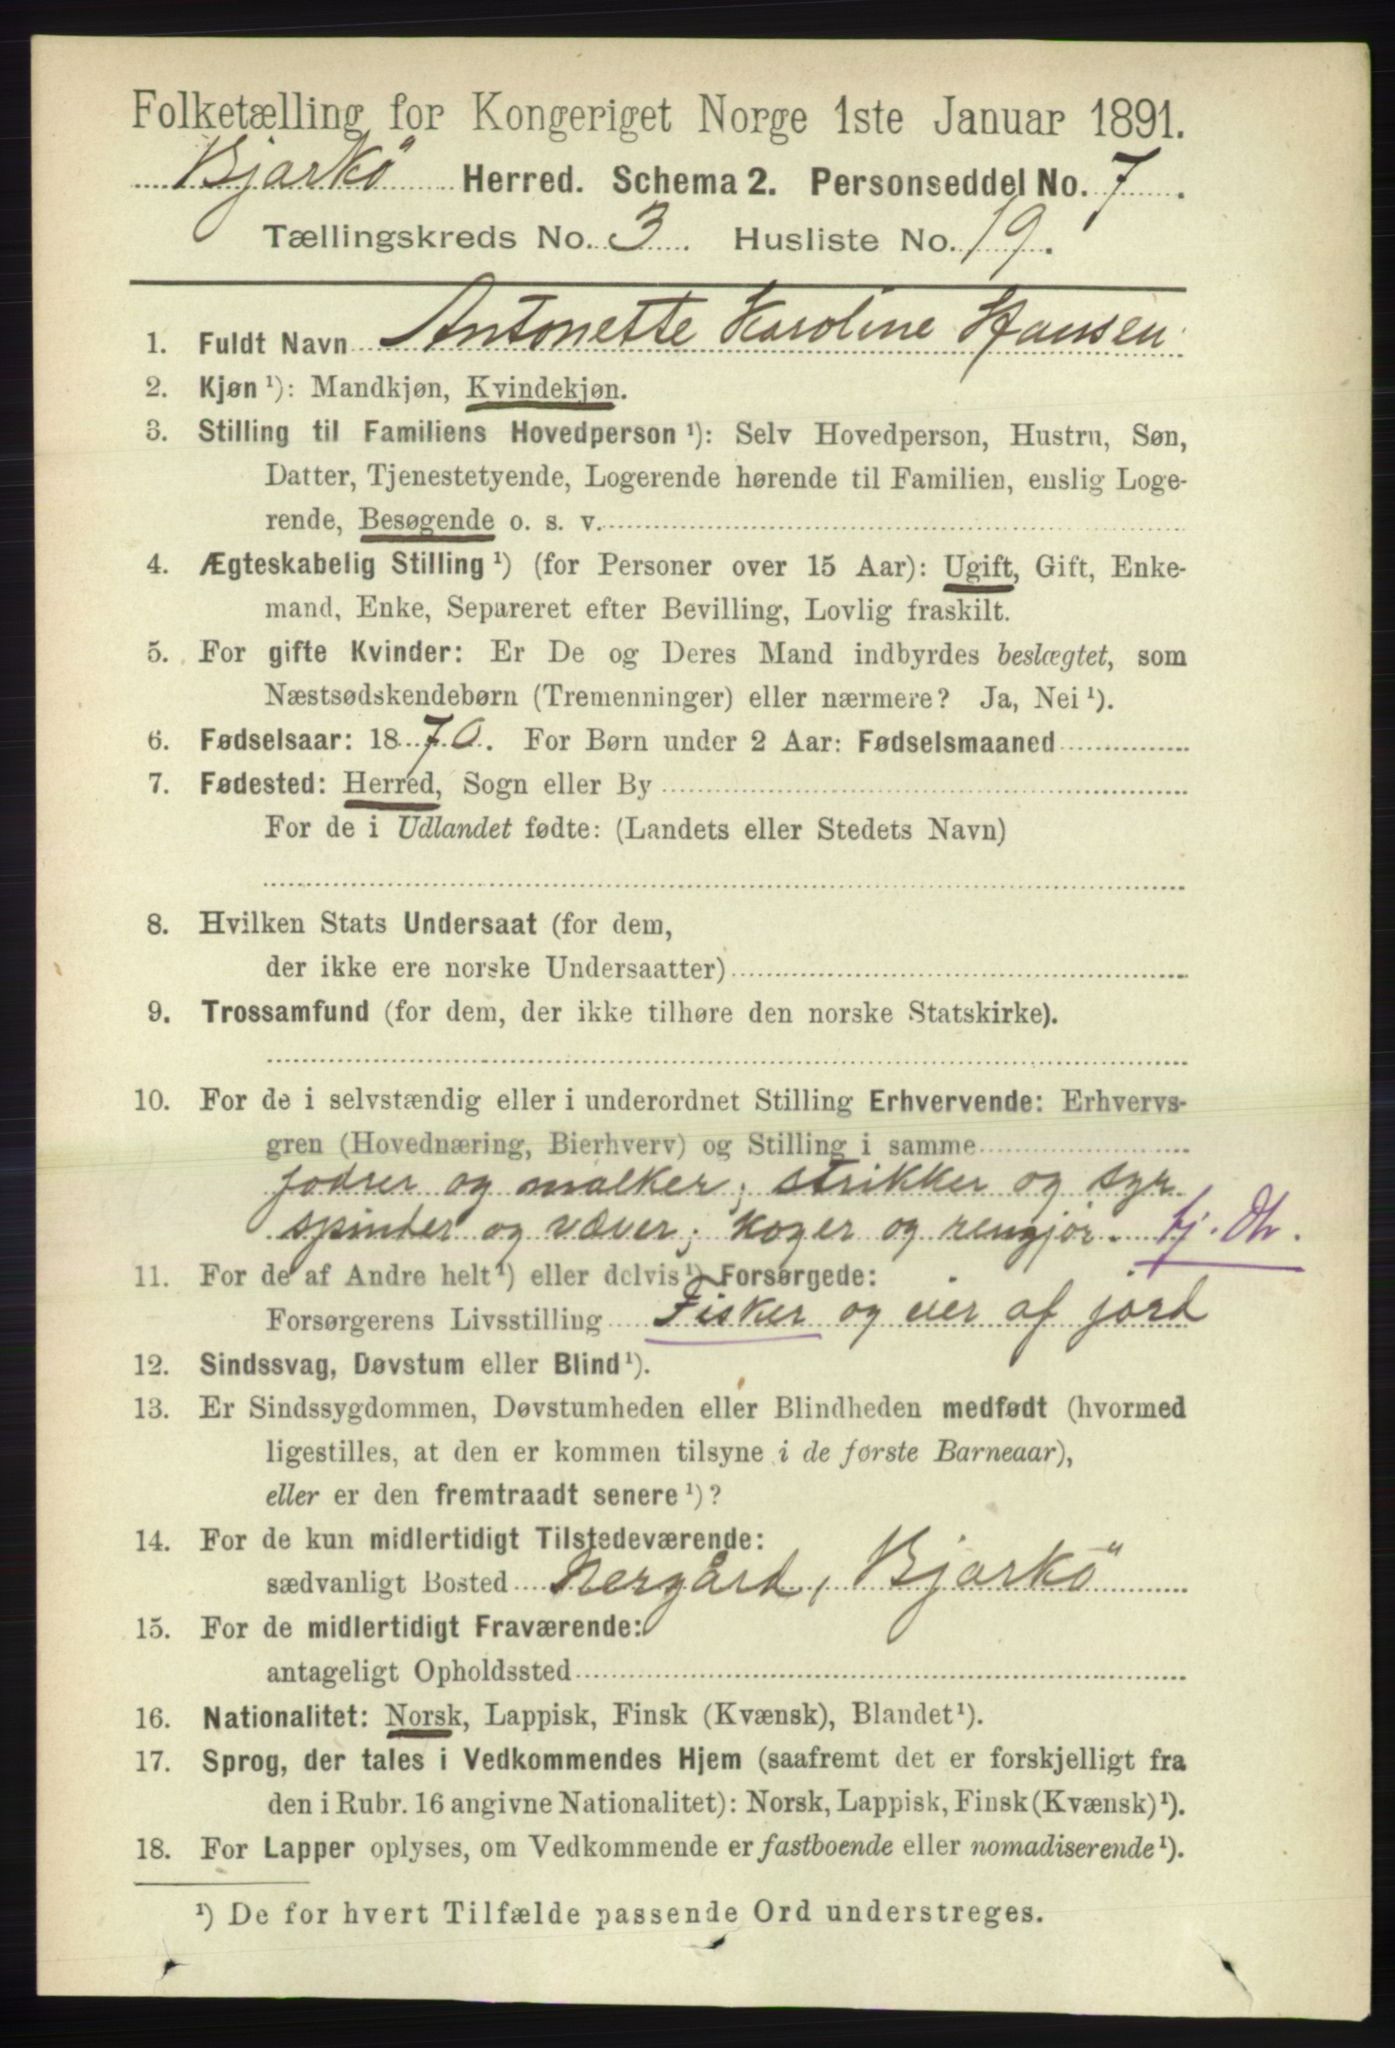 Folketælling for Kongeriget Norge 1ste Januar 1891.
Bjarkö Herred. Schema 2. Personseddel No. 7.
Tællingskreds No. 3. Husliste No. 19.
1. Fuldt Navn Antonette Karoline Hansen
2. Kjøn ¹): Mandkjøn, Kvindekjøn.
3. Stilling til Familiens Hovedperson ¹): Selv Hovedperson, Hustru, Søn,
Datter, Tjenestetyende, Logerende hørende til Familien, enslig Loge-
rende, Besøgende o. s. v.
4. Ægteskabelig Stilling ¹) (for Personer over 15 Aar): Ugift, Gift, Enke-
mand, Enke, Separeret efter Bevilling, Lovlig fraskilt.
5. For gifte Kvinder: Er De og Deres Mand indbyrdes beslægtet, som
Næstsødskendebørn (Tremenninger) eller nærmere? Ja, Nei ¹).
6. Fødselsaar: 1870. For Børn under 2 Aar: Fødselsmaaned
7. Fødested: Herred, Sogn eller By
For de i Udlandet fødte: (Landets eller Stedets Navn)
8. Hvilken Stats Undersaat (for dem,
der ikke ere norske Undersaatter)
9. Trossamfund (for dem, der ikke tilhøre den norske Statskirke).
10. For de i selvstændig eller i underordnet Stilling Erhvervende: Erhvervs-
gren (Hovednæring, Bierhverv) og Stilling i samme
fodrer og malker; strikker og syr
spinder og væver; koger og rengjør. tj. Dtr.
11. For de af Andre helt ¹) eller delvis ¹) Forsørgede:
Forsørgerens Livsstilling Fisker og eier af jord
12. Sindssvag, Døvstum eller Blind ¹).
13. Er Sindssygdommen, Døvstumheden eller Blindheden medfødt (hvormed
ligestilles, at den er kommen tilsyne i de første Barneaar),
eller er den fremtraadt senere ¹)?
14. For de kun midlertidigt Tilstedeværende:
sædvanligt Bosted Nergård, Bjarkö
15. For de midlertidigt Fraværende:
antageligt Opholdssted
16. Nationalitet: Norsk, Lappisk, Finsk (Kvænsk), Blandet ¹).
17. Sprog, der tales i Vedkommendes Hjem (saafremt det er forskjelligt fra
den i Rubr. 16 angivne Nationalitet): Norsk, Lappisk, Finsk (Kvænsk) ¹).
18. For Lapper oplyses, om Vedkommende er fastboende eller nomadiserende ¹).
¹) De for hvert Tilfælde passende Ord understreges.